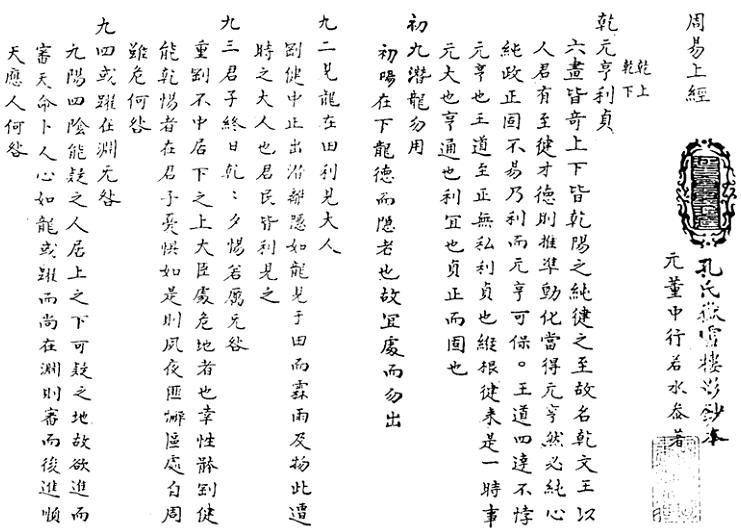 周易上經
孔氏嶽雪樓影鈔本
元董中行若水叅著
乾上
乾下
乾元亨利貞
六畫皆奇上下皆乾陽之純健之至故名乾文王以
人君有至健才德則推準動化當得元亨然必純心
純政正固不易乃利而元亨可保。王道四達不悖
元亨也王道至正無私利貞也縱根健来是一時事
元大也亨通也利宜也貞正而固也
初九潛龍勿用
初陽在下龍德而隠者也故宜處而勿出
九二見龍在田利見大人
剛健中正出潛離隠如龍見于田而霖雨及物此遭
時之大人也君民皆利見之
九三君子終日乾〻夕惕若厲无咎
重剛不中居下之上大臣處危地者也幸性體剛健
能乾惕者在君子憂惧如是則夙夜匪懈區處自周
雖危何咎
九四或躍在淵无咎
九陽四陰能疑之人居上之下可疑之地故欲進而
審天命卜人心如龍或躍而尚在淵則審而後進順
天應人何咎